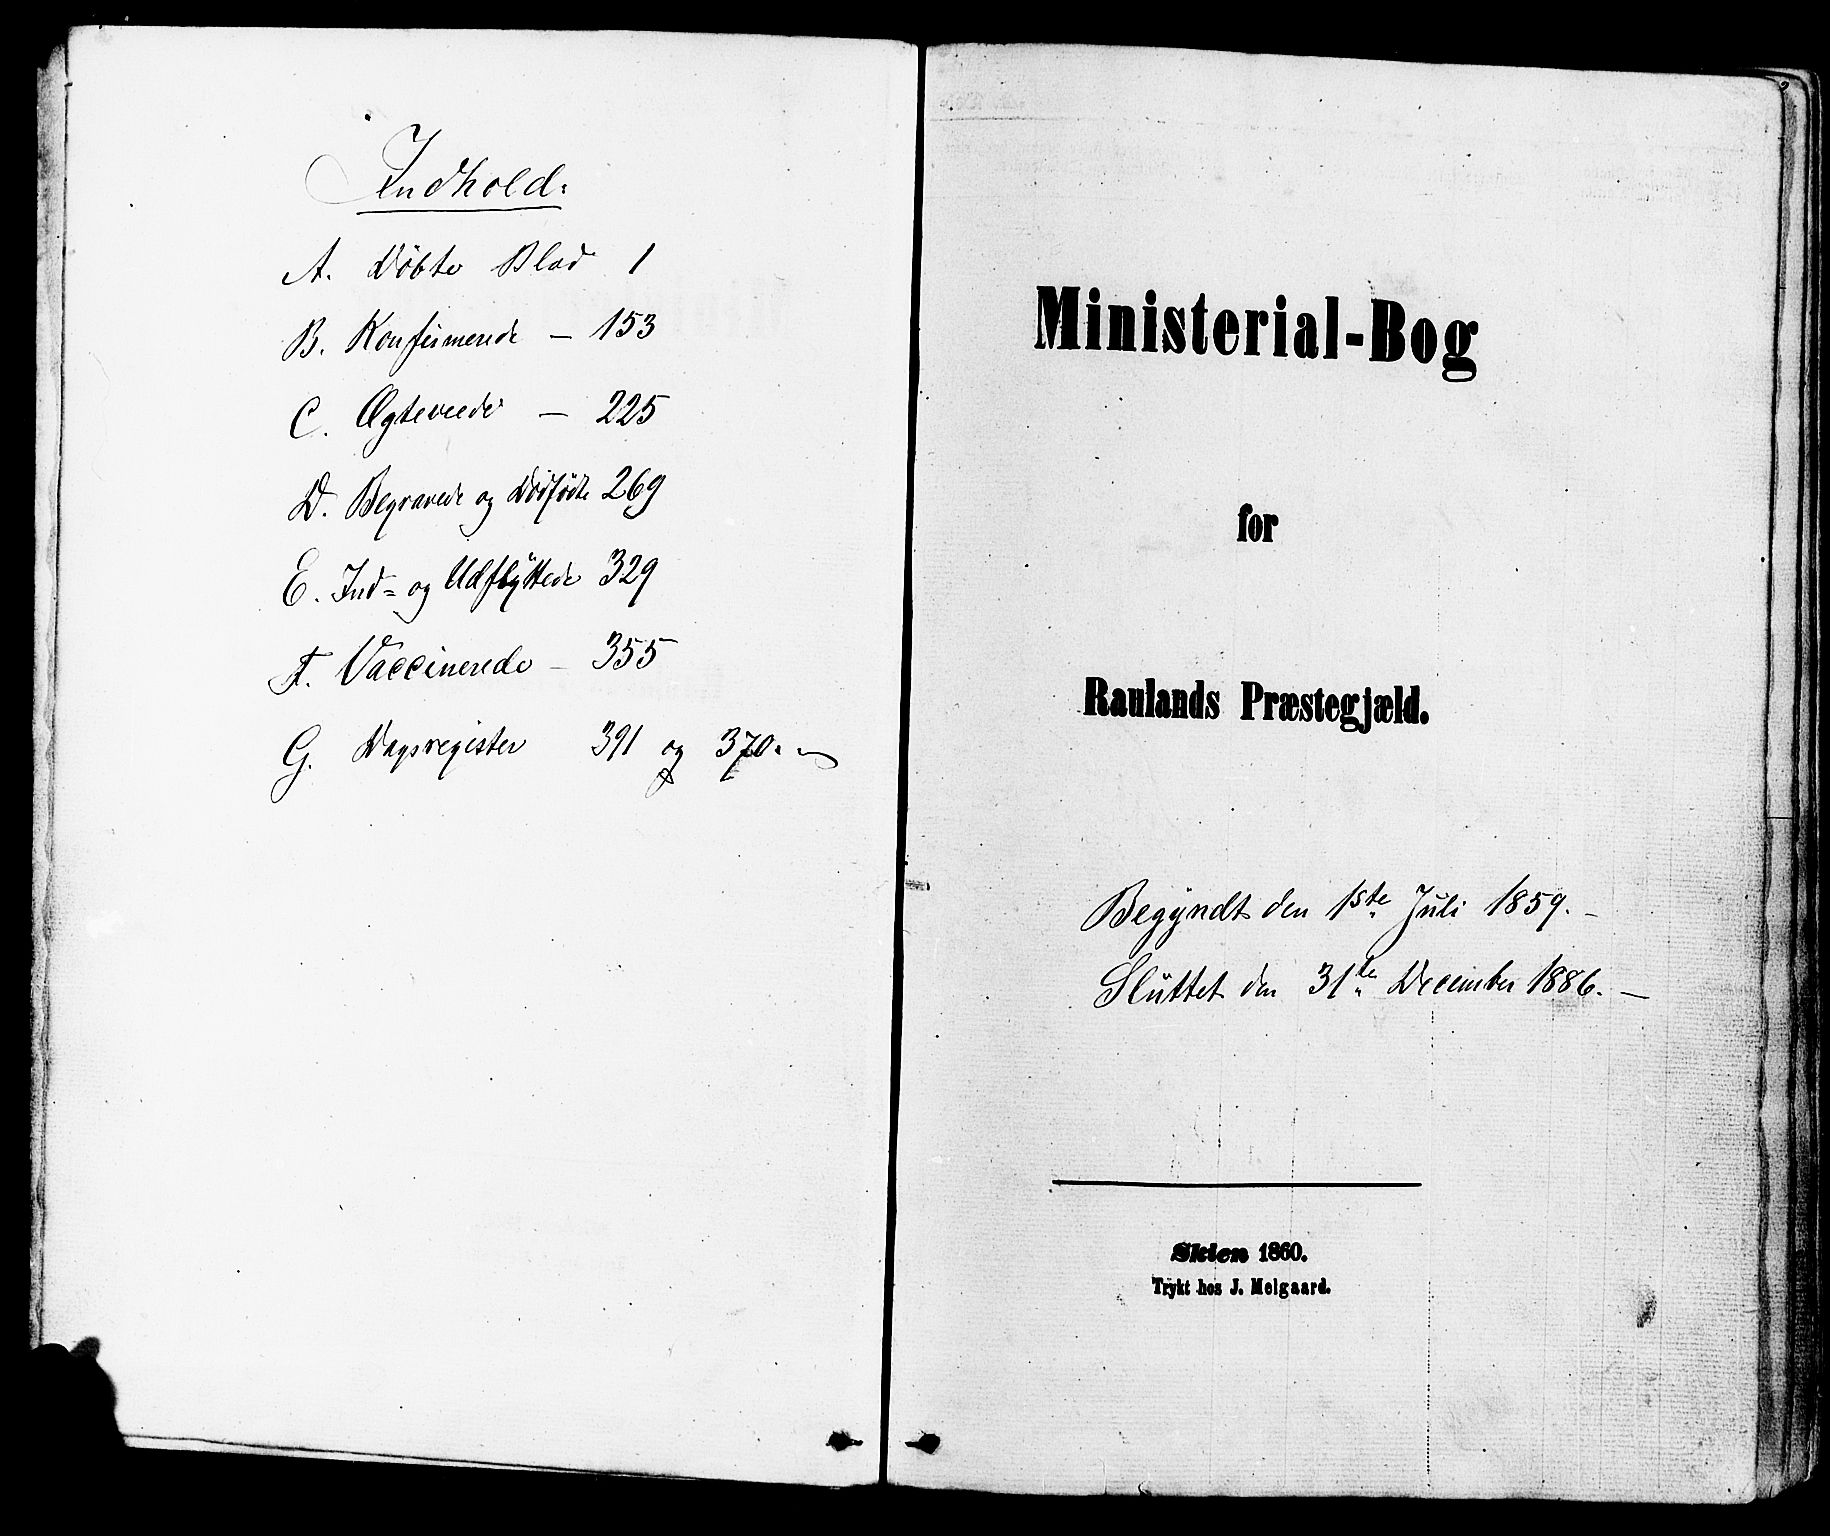 Indhold:
A. Døbte Blad 1
B. Konfirmerede — 153
C. Ægteviede — 225
D. Begravede og Dødfødte 269
E. Ind= og Udflyttede 329
F. Vaccinerede — 355
G. Dagsregister 391 og 370.
Ministerial-Bog
for
Raulands Præstegjæld.
Begyndt den 1ste Juli 1859. –
Sluttet den 31te December 1886. —
Skien 1860.
Trykt hos J. Melgaard.